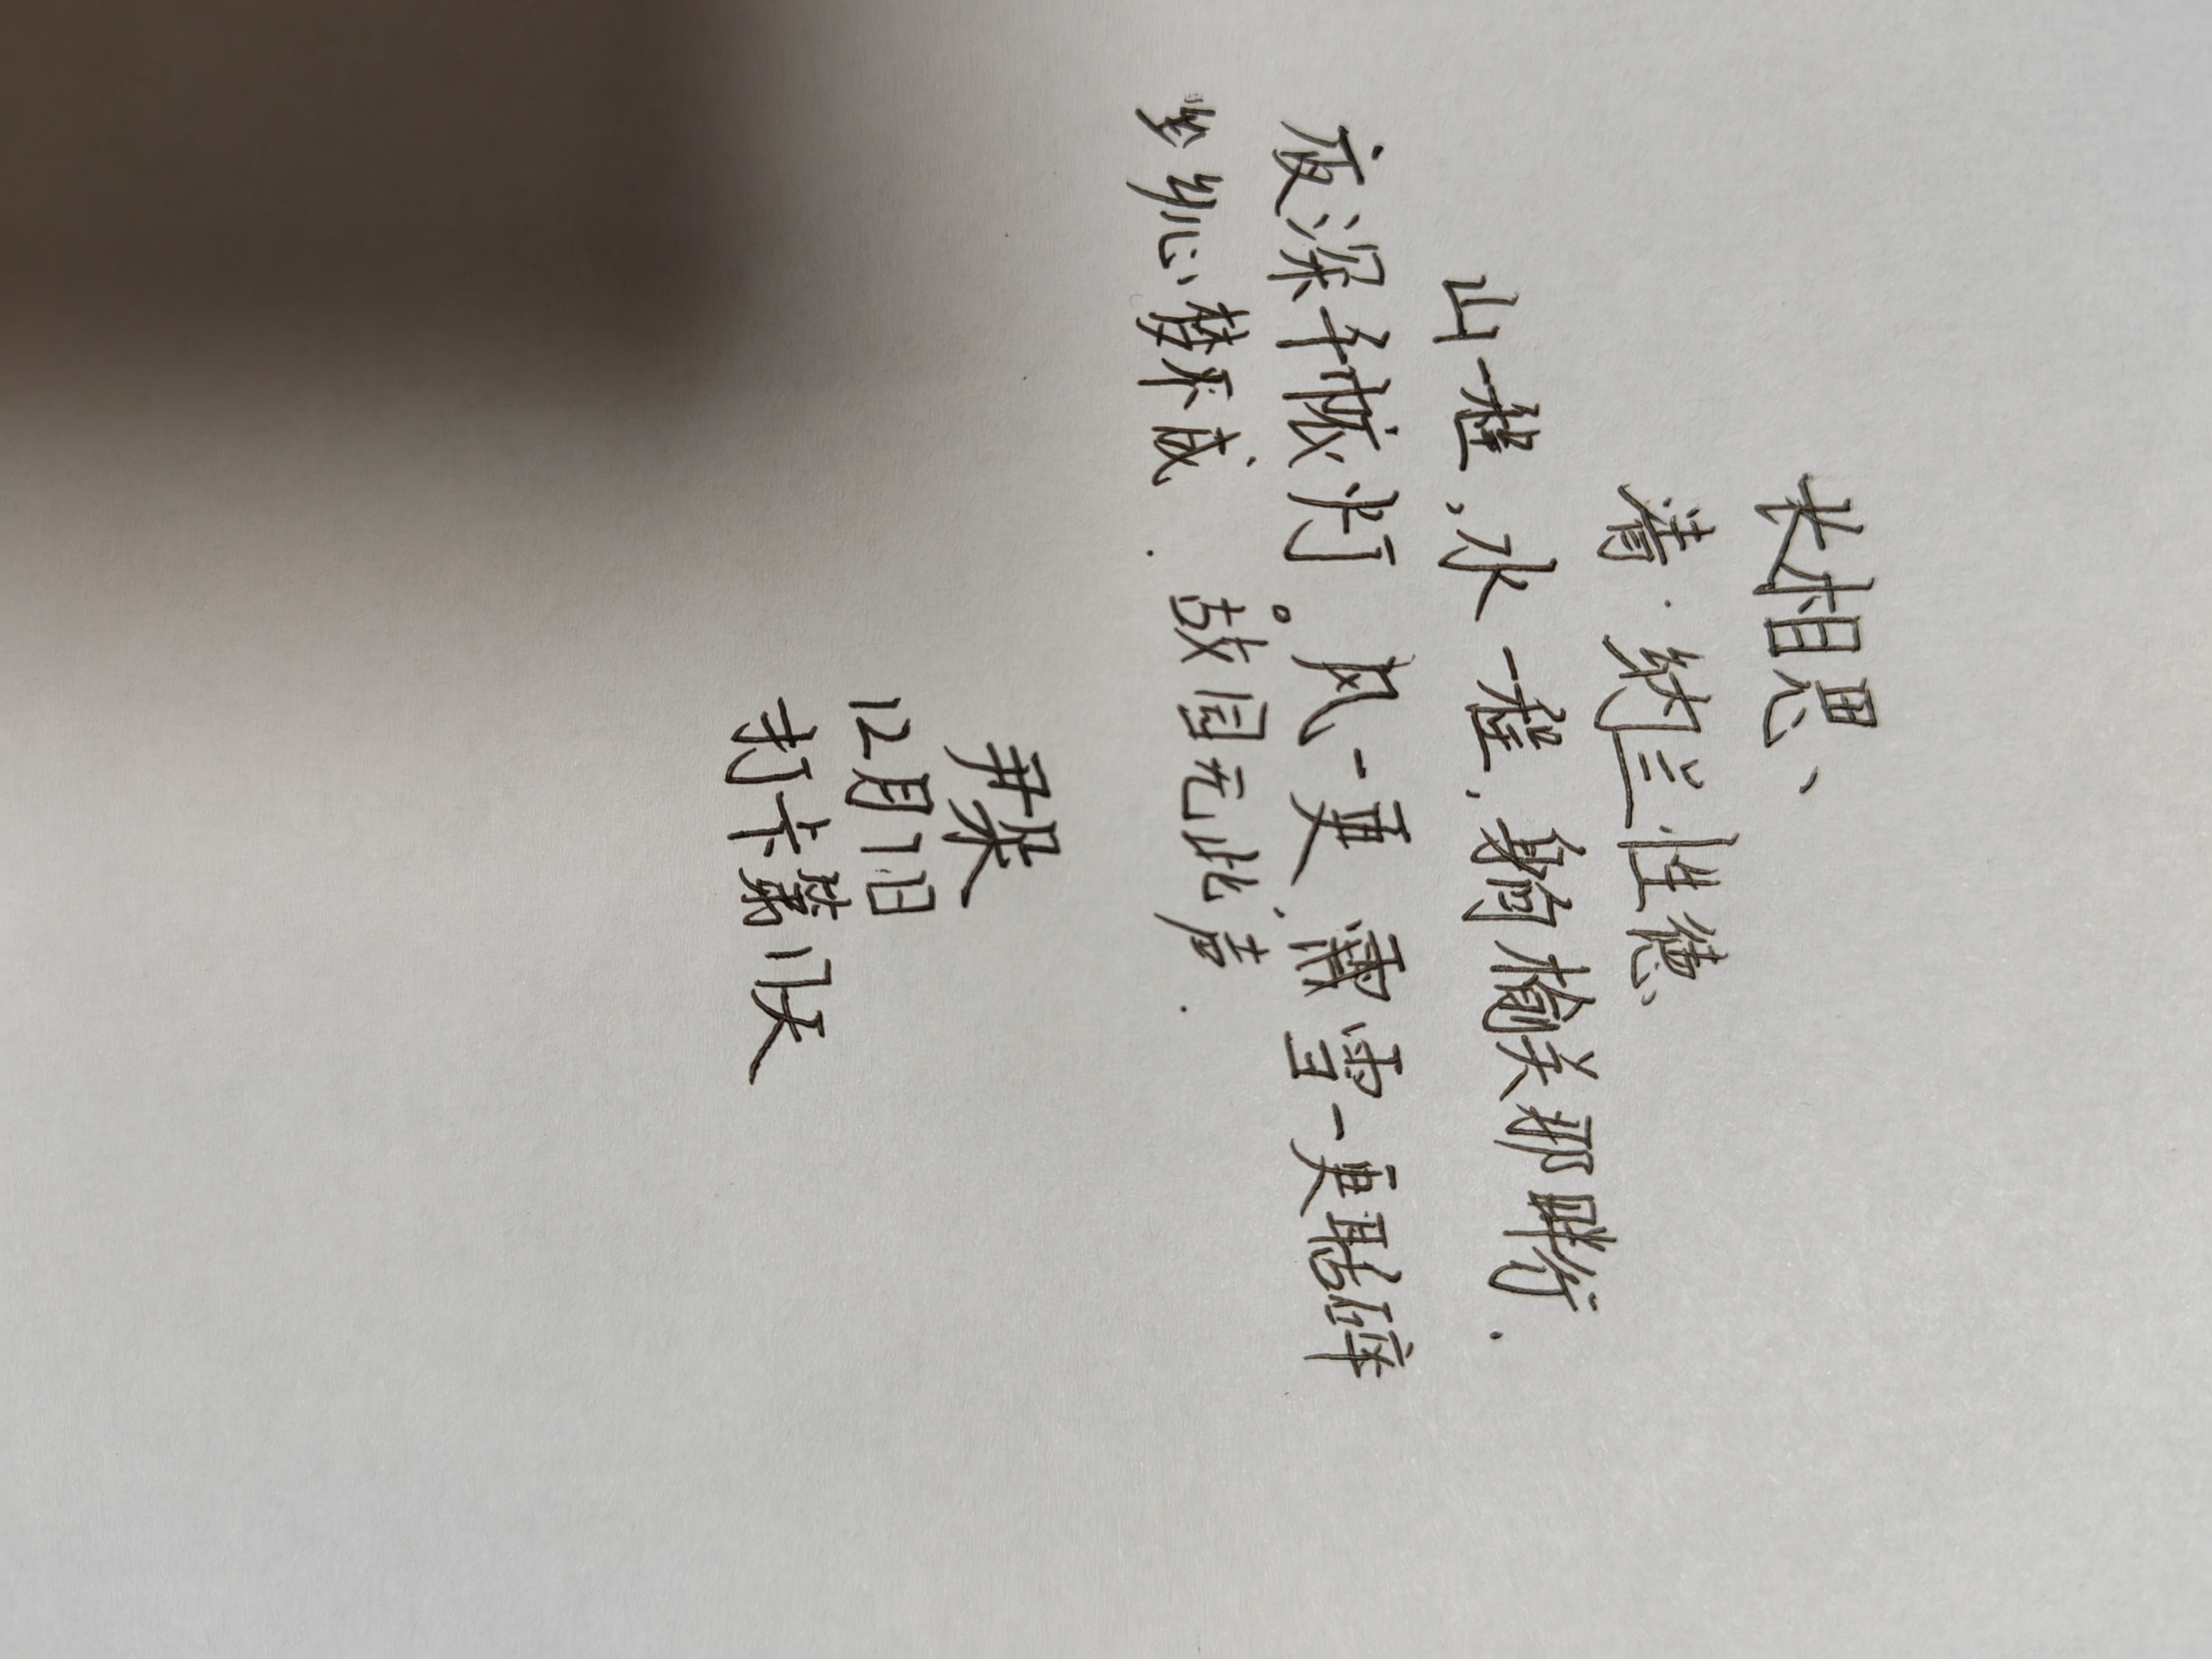 长相思、
清·纳兰性德
山一程,水一程,身向榆关那畔行.
夜深千帐灯。风一更 雪一更聒碎
乡心梦不成.故园无此声.
丑朵
12月7日
打卡第17天